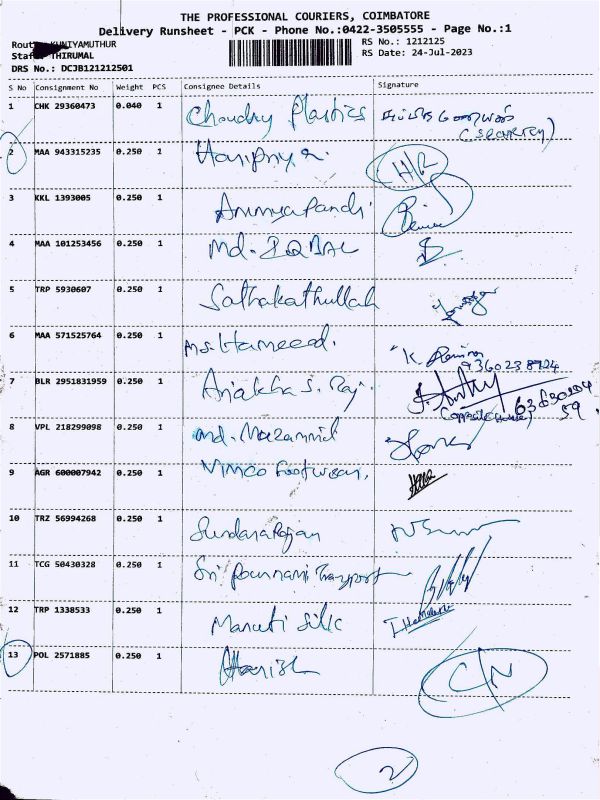 THE PROFESSIONAL COURIERS, COIMBATORE
Delivery Runsheet - PCK - Phone No.:0422-3505555 - Page No.:1
Route: KUNIYAMUTHUR
RS No.: 1212125
Staff: THIRUMAL
RS Date: 24-Jul-2023
DRS No.: DCJB121212501
S No Consignment No Weight PCS Consignee Details Signature
1 CHK 29360473 0.040 1 Choudry Plastics
(SECURITY)
2 MAA 943315235 0.250 1 Haripriya. HR
3 KKL 1393005 0.250 1
4 MAA 101253456 0.250 1 Md. IQBAL
5 TRP 5930607 0.250 1 Sathakathullah
6 MAA 571525764 0.250 1 Ms. Hameed. K.
9360238924
7 BLR 2951831959 0.250 1 S. Raj.
8 VPL 218299098 0.250 1 Md. Mozammil
9 AGR 600007942 0.250 1 Footwear,
10 TRZ 56994268 0.250 1 Sundararajan
11 TCG 50430328 0.250 1 Sri Pournami Transport
12 TRP 1338533 0.250 1 Maruti Silk
13 POL 2571885 0.250 1 Harish C/N
2